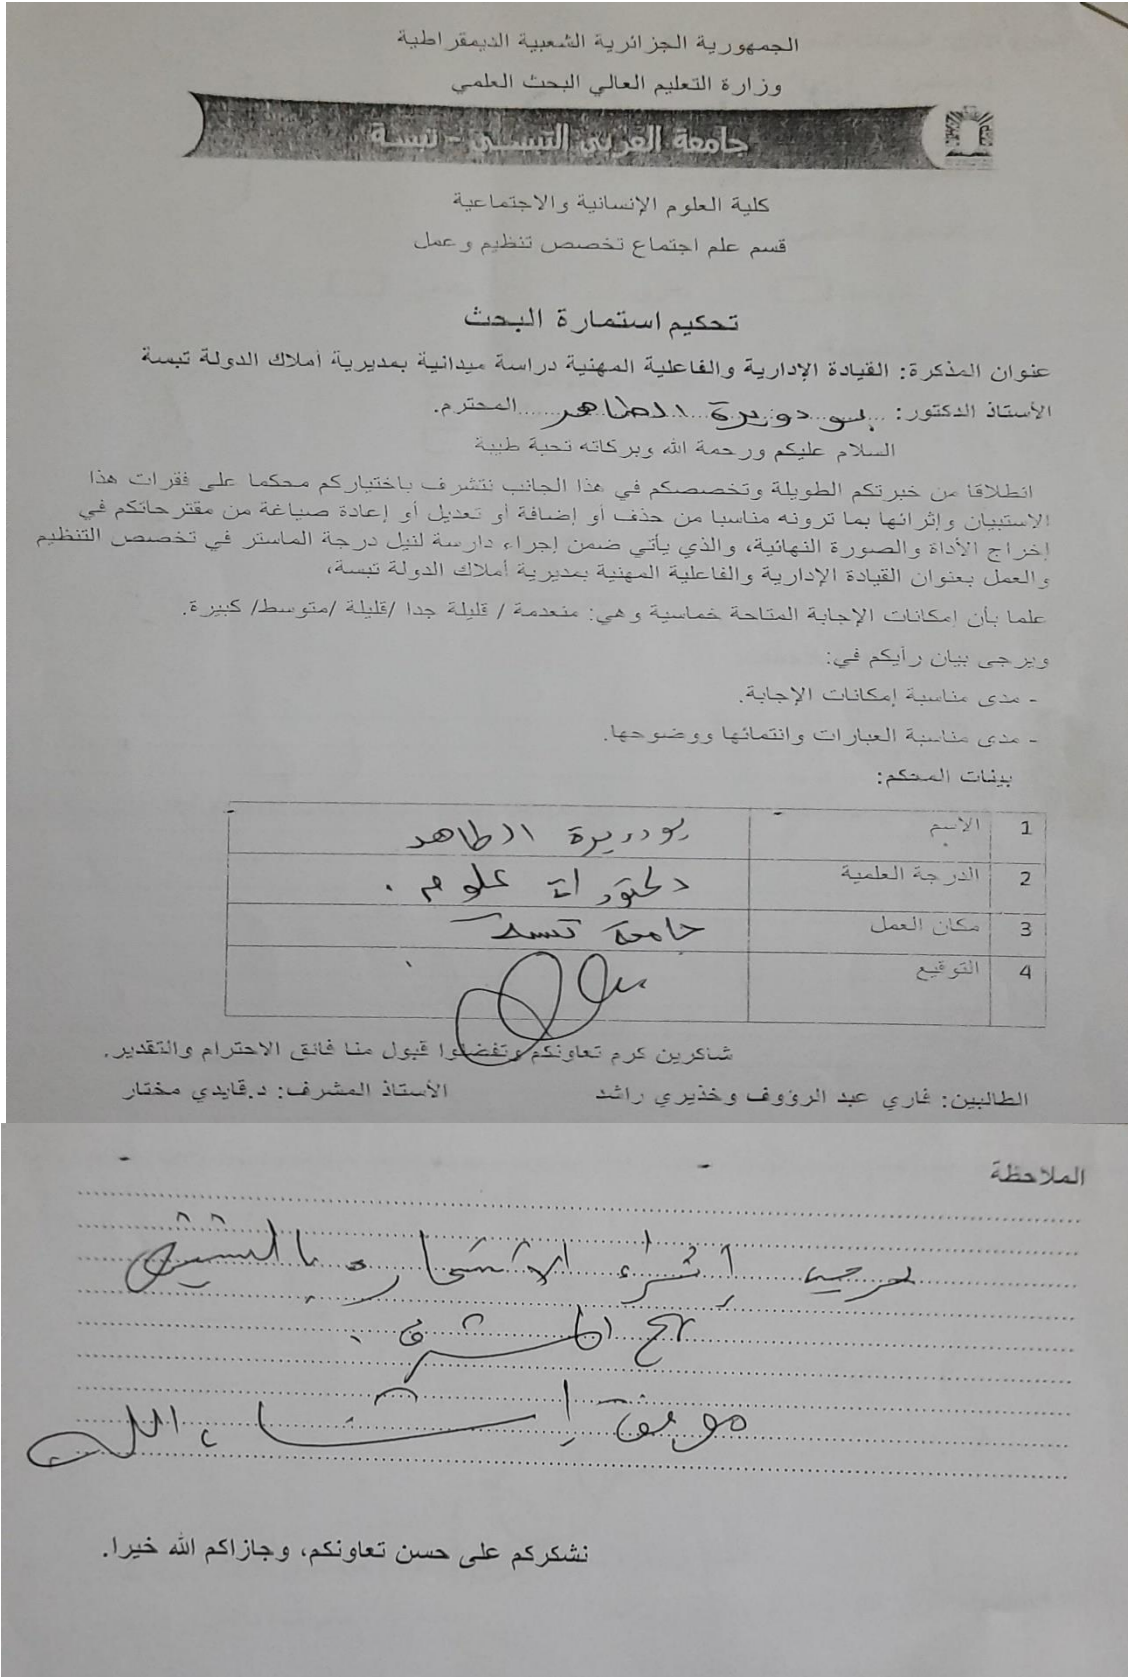 الجمهورية الجزائرية الشعبية الديمقراطية
وزارة التعليم العالي البحث العلمي
جامعة العربي التبسي - تبسة
كلية العلوم الإنسانية والاجتماعية
قسم علم اجتماع تخصص تنظيم وعمل
تحكيم استمارة البحث
عنوان المذكرة: القيادة الإدارية والفاعلية المهنية دراسة ميدانية بمديرية أملاك الدولة تبسة
الأستاذ الدكتور: ... بودويرة الطاهر ... المحترم.
السلام عليكم ورحمة الله وبركاته تحية طيبة
انطلاقا من خبرتكم الطويلة وتخصصكم في هذا الجانب نتشرف باختياركم محكما على فقرات هذا
الاستبيان وإثرائها بما ترونه مناسبا من حذف أو إضافة أو تعديل أو إعادة صياغة من مقترحاتكم في
إخراج الأداة والصورة النهائية، والذي يأتي ضمن إجراء دارسة لنيل درجة الماستر في تخصص التنظيم
والعمل بعنوان القيادة الإدارية والفاعلية المهنية بمديرية أملاك الدولة تبسة،
علما بأن إمكانات الإجابة المتاحة خماسية وهي: منعدمة / قليلة جدا /قليلة /متوسط/ كبيرة.
ويرجى بيان رأيكم في:
- مدى مناسبة إمكانات الإجابة.
- مدى مناسبة العبارات وانتمائها ووضوحها.
بينات المحكم:
1 الاسم الطاهر
2 الدرجة العلمية دكتوراة علوم .
3 مكان العمل جامعة تبسة
4 التوقيع
شاكرين كرم تعاونكم وتفضلوا قبول منا فائق الاحترام والتقدير.
الطالبين: فاري عبد الرؤوف وخذيري راشد الأستاذ المشرف: د.قايدي مختار
الملاحظة
إثراء الاستمارة بالتنسيق
مع المشرف .
موفق إن شاء الله
نشكركم على حسن تعاونكم، وجازاكم الله خيرا.